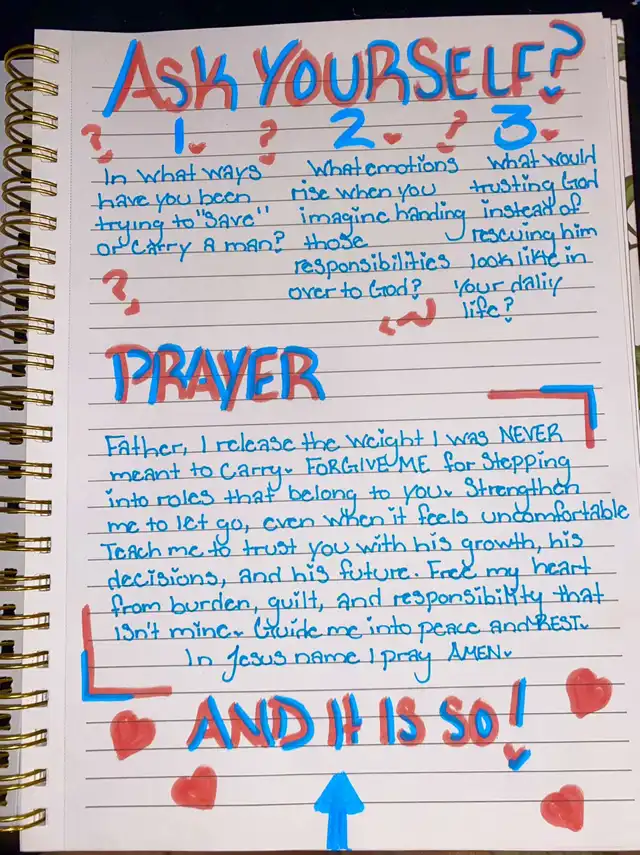 ASK YOURSELF?
1.
In what ways
have you been
trying to "save"
or carry a man?
2.
What emotions
rise when you
imagine handing
those
responsibilities
over to God?
3.
What would
trusting God
instead of
rescuing him
look like in
your daliy
life?
PRAYER
Father, I release the weight I was NEVER
meant to carry. FORGIVE ME for stepping
into roles that belong to you. Strengthen
me to let go, even when it feels uncomfortable
Teach me to trust you with his growth, his
decisions, and his future. Free my heart
from burden, guilt, and responsibility that
isn't mine. Guide me into peace and REST.
In Jesus name I pray AMEN.
AND IT IS SO!